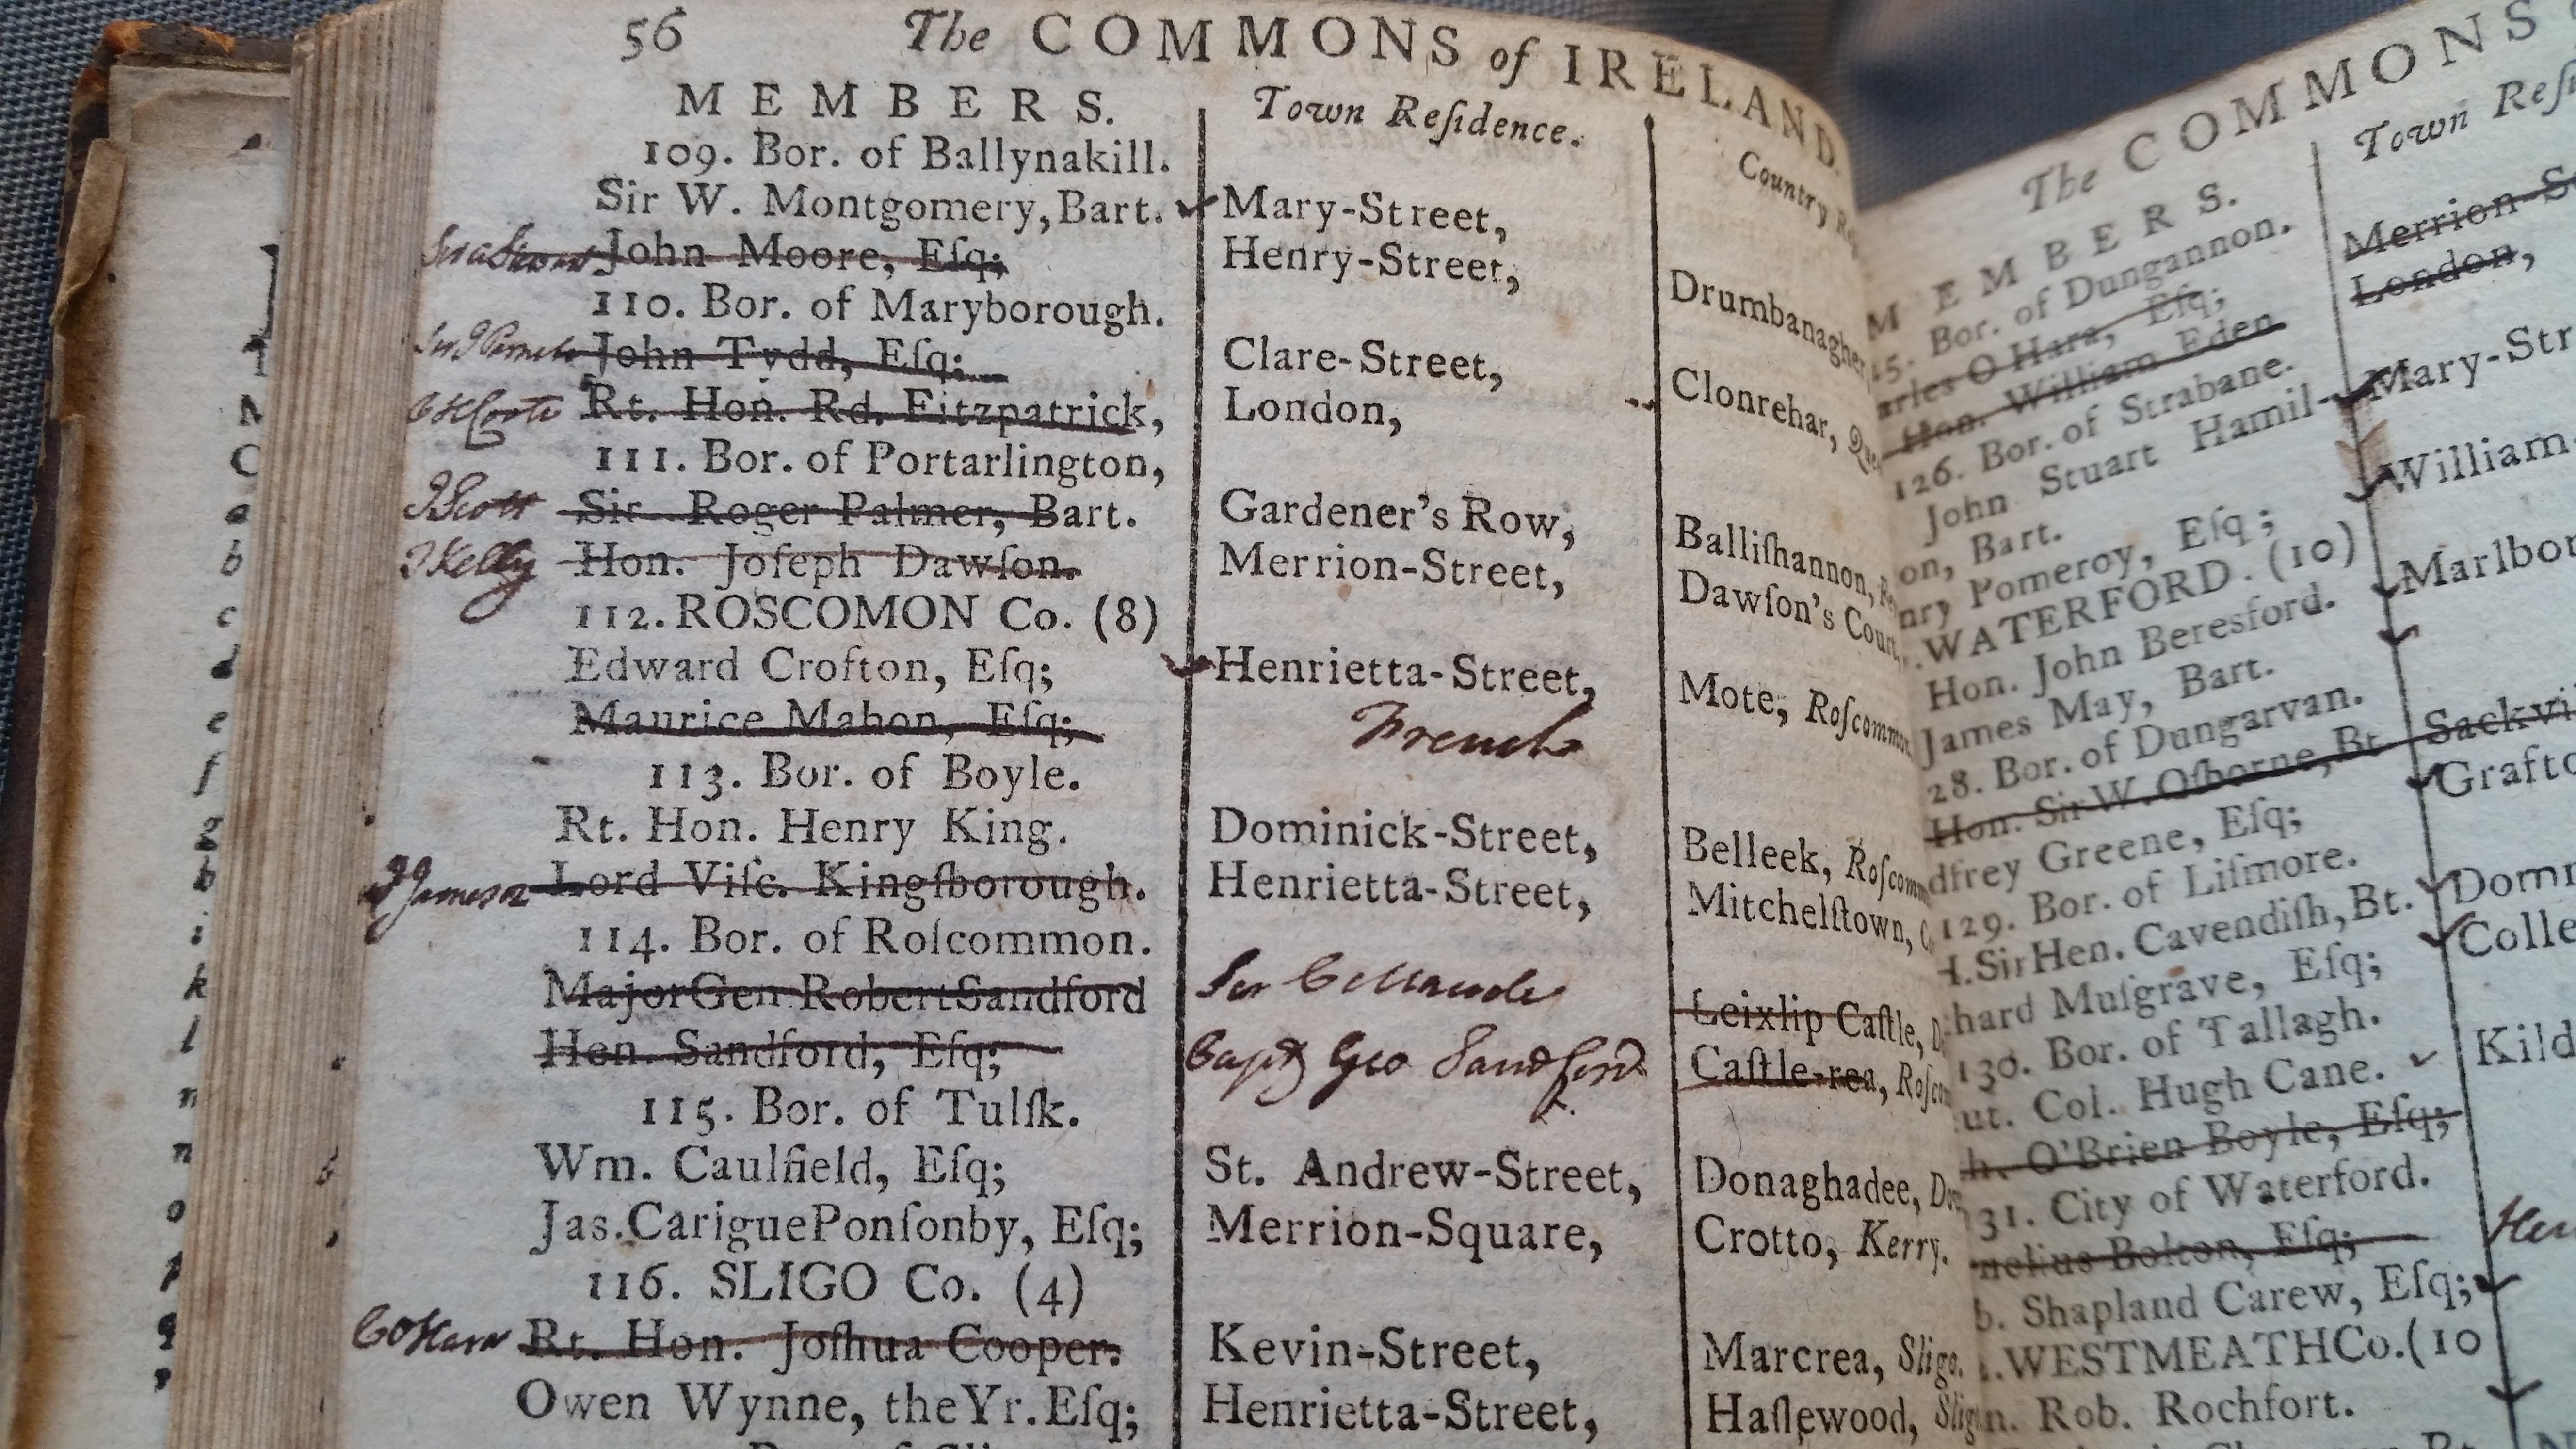 56 The COMMONS of IRELAND.
MEMBERS. Town Reſidence. Country
109. Bor. of Ballynakill.
Sir W. Montgomery, Bart. Mary-Street,
John Moore, Eſq; Henry-Street, Drumbanagher
110. Bor. of Maryborough.
John Tydd, Eſq; Clare-Street, Clonrehar,
C H Coote Rt. Hon. Rd. Fitzpatrick, London,
111. Bor. of Portarlington,
J Scott Sir Roger Palmer, Bart. Gardener's Row, Balliſhannon,
T Kelly Hon. Joſeph Dawſon. Merrion-Street, Dawſon's Court,
112. ROSCOMON Co. (8)
Edward Crofton, Eſq; Henrietta-Street, Mote, Roſcommon
Maurice Mahon, Eſq; French
113. Bor. of Boyle.
Rt. Hon. Henry King. Dominick-Street, Belleek,
Jameson Lord Viſc. Kingſborough. Henrietta-Street, Mitchelſtown,
114. Bor. of Roſcommon.
Major Gen Robert Sandford Leixlip Caſtle,
Hen. Sandford, Eſq; Capt Geo Sandford Caſtle-rea,
115. Bor. of Tulſk.
Wm. Caulfield, Eſq; St. Andrew-Street, Donaghadee,
Jas. Carigue Ponſonby, Eſq; Merrion-Square, Crotto, Kerry.
116. SLIGO Co. (4)
C O Hara Rt. Hon. Joſhua Cooper. Kevin-Street, Marcrea, Sligo.
Owen Wynne, the Yr. Eſq; Henrietta-Street, Haſlewood,
The COMMONS
MEMBERS. Town
Bor. of Dungannon. Merrion-
O Hara, Eſq; London,
Hon. William Eden
126. Bor. of Strabane.
John Stuart Hamil- Mary-
on, Bart.
Pomeroy, Eſq; William
WATERFORD. (10)
Hon. John Beresford.
James May, Bart.
Bor. of Dungarvan.
Hon. Sir W. Oſborne, Bt
Greene, Eſq;
129. Bor. of Liſmore.
Sir Hen. Cavendiſh, Bt.
Muſgrave, Eſq;
130. Bor. of Tallagh.
Col. Hugh Cane.
O'Brien Boyle, Eſq;
City of Waterford.
Bolton, Eſq;
Shapland Carew, Eſq;
WESTMEATH Co. (10
Rob. Rochfort.